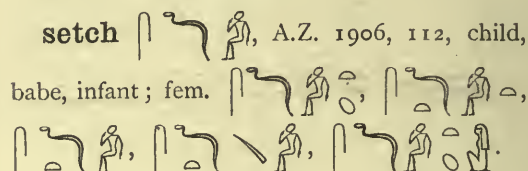 setch 𓋴𓆓𓀔, A.Z. 1906, 112, child,
babe, infant; fem. 𓋴𓆓𓀔𓏏𓆇, 𓋴𓆓𓏏𓀔𓏏,
𓋴𓆓𓏏𓀔, 𓋴𓆓𓏏𓏯𓀔, 𓋴𓆓𓀔𓏏𓆇𓁐.